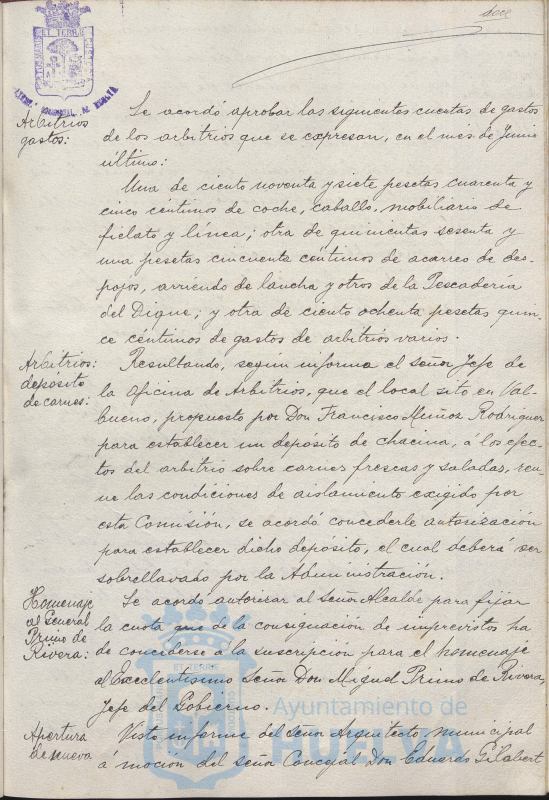 doce
PORTUS MARIS
ET TERRE
CUSTODIA
Arbitrios
gastos:
Se acordó aprobar las siguientes cuentas de gastos
de los arbitrios que se expresan, en el mes de Junio
último:
Una de ciento noventa y siete pesetas cuarenta y
cinco céntimos de coche, caballo, mobiliario de
fielato y línea; otra de quinientas sesenta y
una pesetas cincuenta céntimos de acarreo de des-
pojos, arriendo de lancha y otros de la Pescadería
del Dique; y otra de ciento ochenta pesetas quin-
ce céntimos de gastos de arbitrios varios.
Arbitrios:
depósito
de carnes:
Resultando, según informa el señor Jefe de
la oficina de Arbitrios, que el local sito en Val-
bueno, propuesto por Don Francisco Muñoz Rodriguez
para establecer un depósito de chacina, á los efec-
tos del arbitrio sobre carnes frescas y saladas, reu-
ne las condiciones de aislamiento exigido por
esta Comisión, se acordó concederle autorización
para establecer dicho depósito, el cual deberá ser
sobrellavado por la Administración.
Homenaje
al General
Primo de
Rivera:
Se acordó autorizar al Señor Alcalde para fijar
la cuota que de la consignación de imprevistos ha
de concederse a la suscripción para el homenaje
al Excelentísimo Señor Don Miguel Primo de Rivera,
Jefe del Gobierno.
Apertura
de nueva
Visto informe del señor Arquitecto municipal
á moción del señor Concejal Don Eduardo Gilabert
Ayuntamiento de
HUELVA